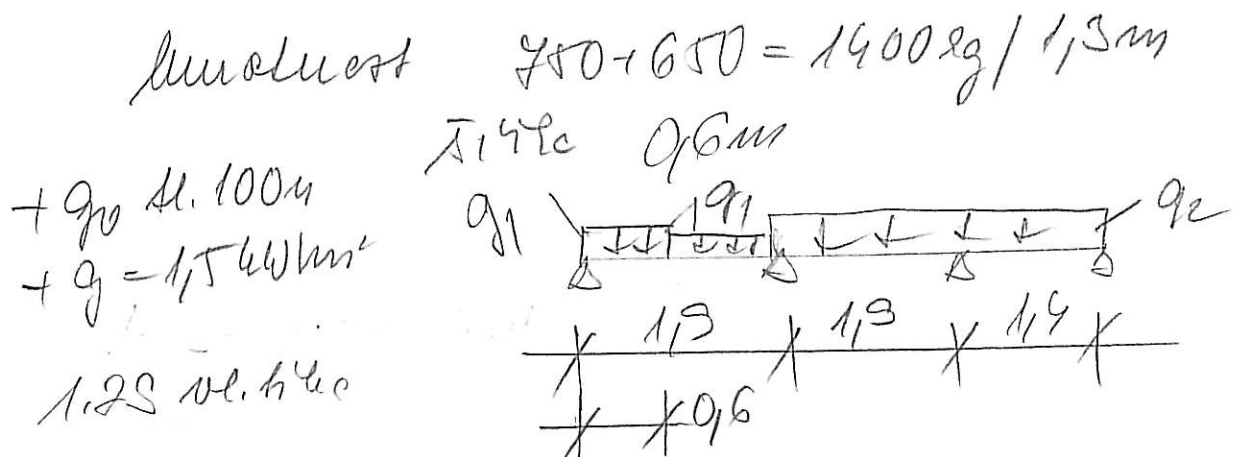 hmotnost 750+650 = 1400kg / 1,3m
šířka 0,6m
+ g0 tl. 100m
+ g = 1,5 kN/m²
g1 g1 g2
1,9 1,9 1,4
0,6